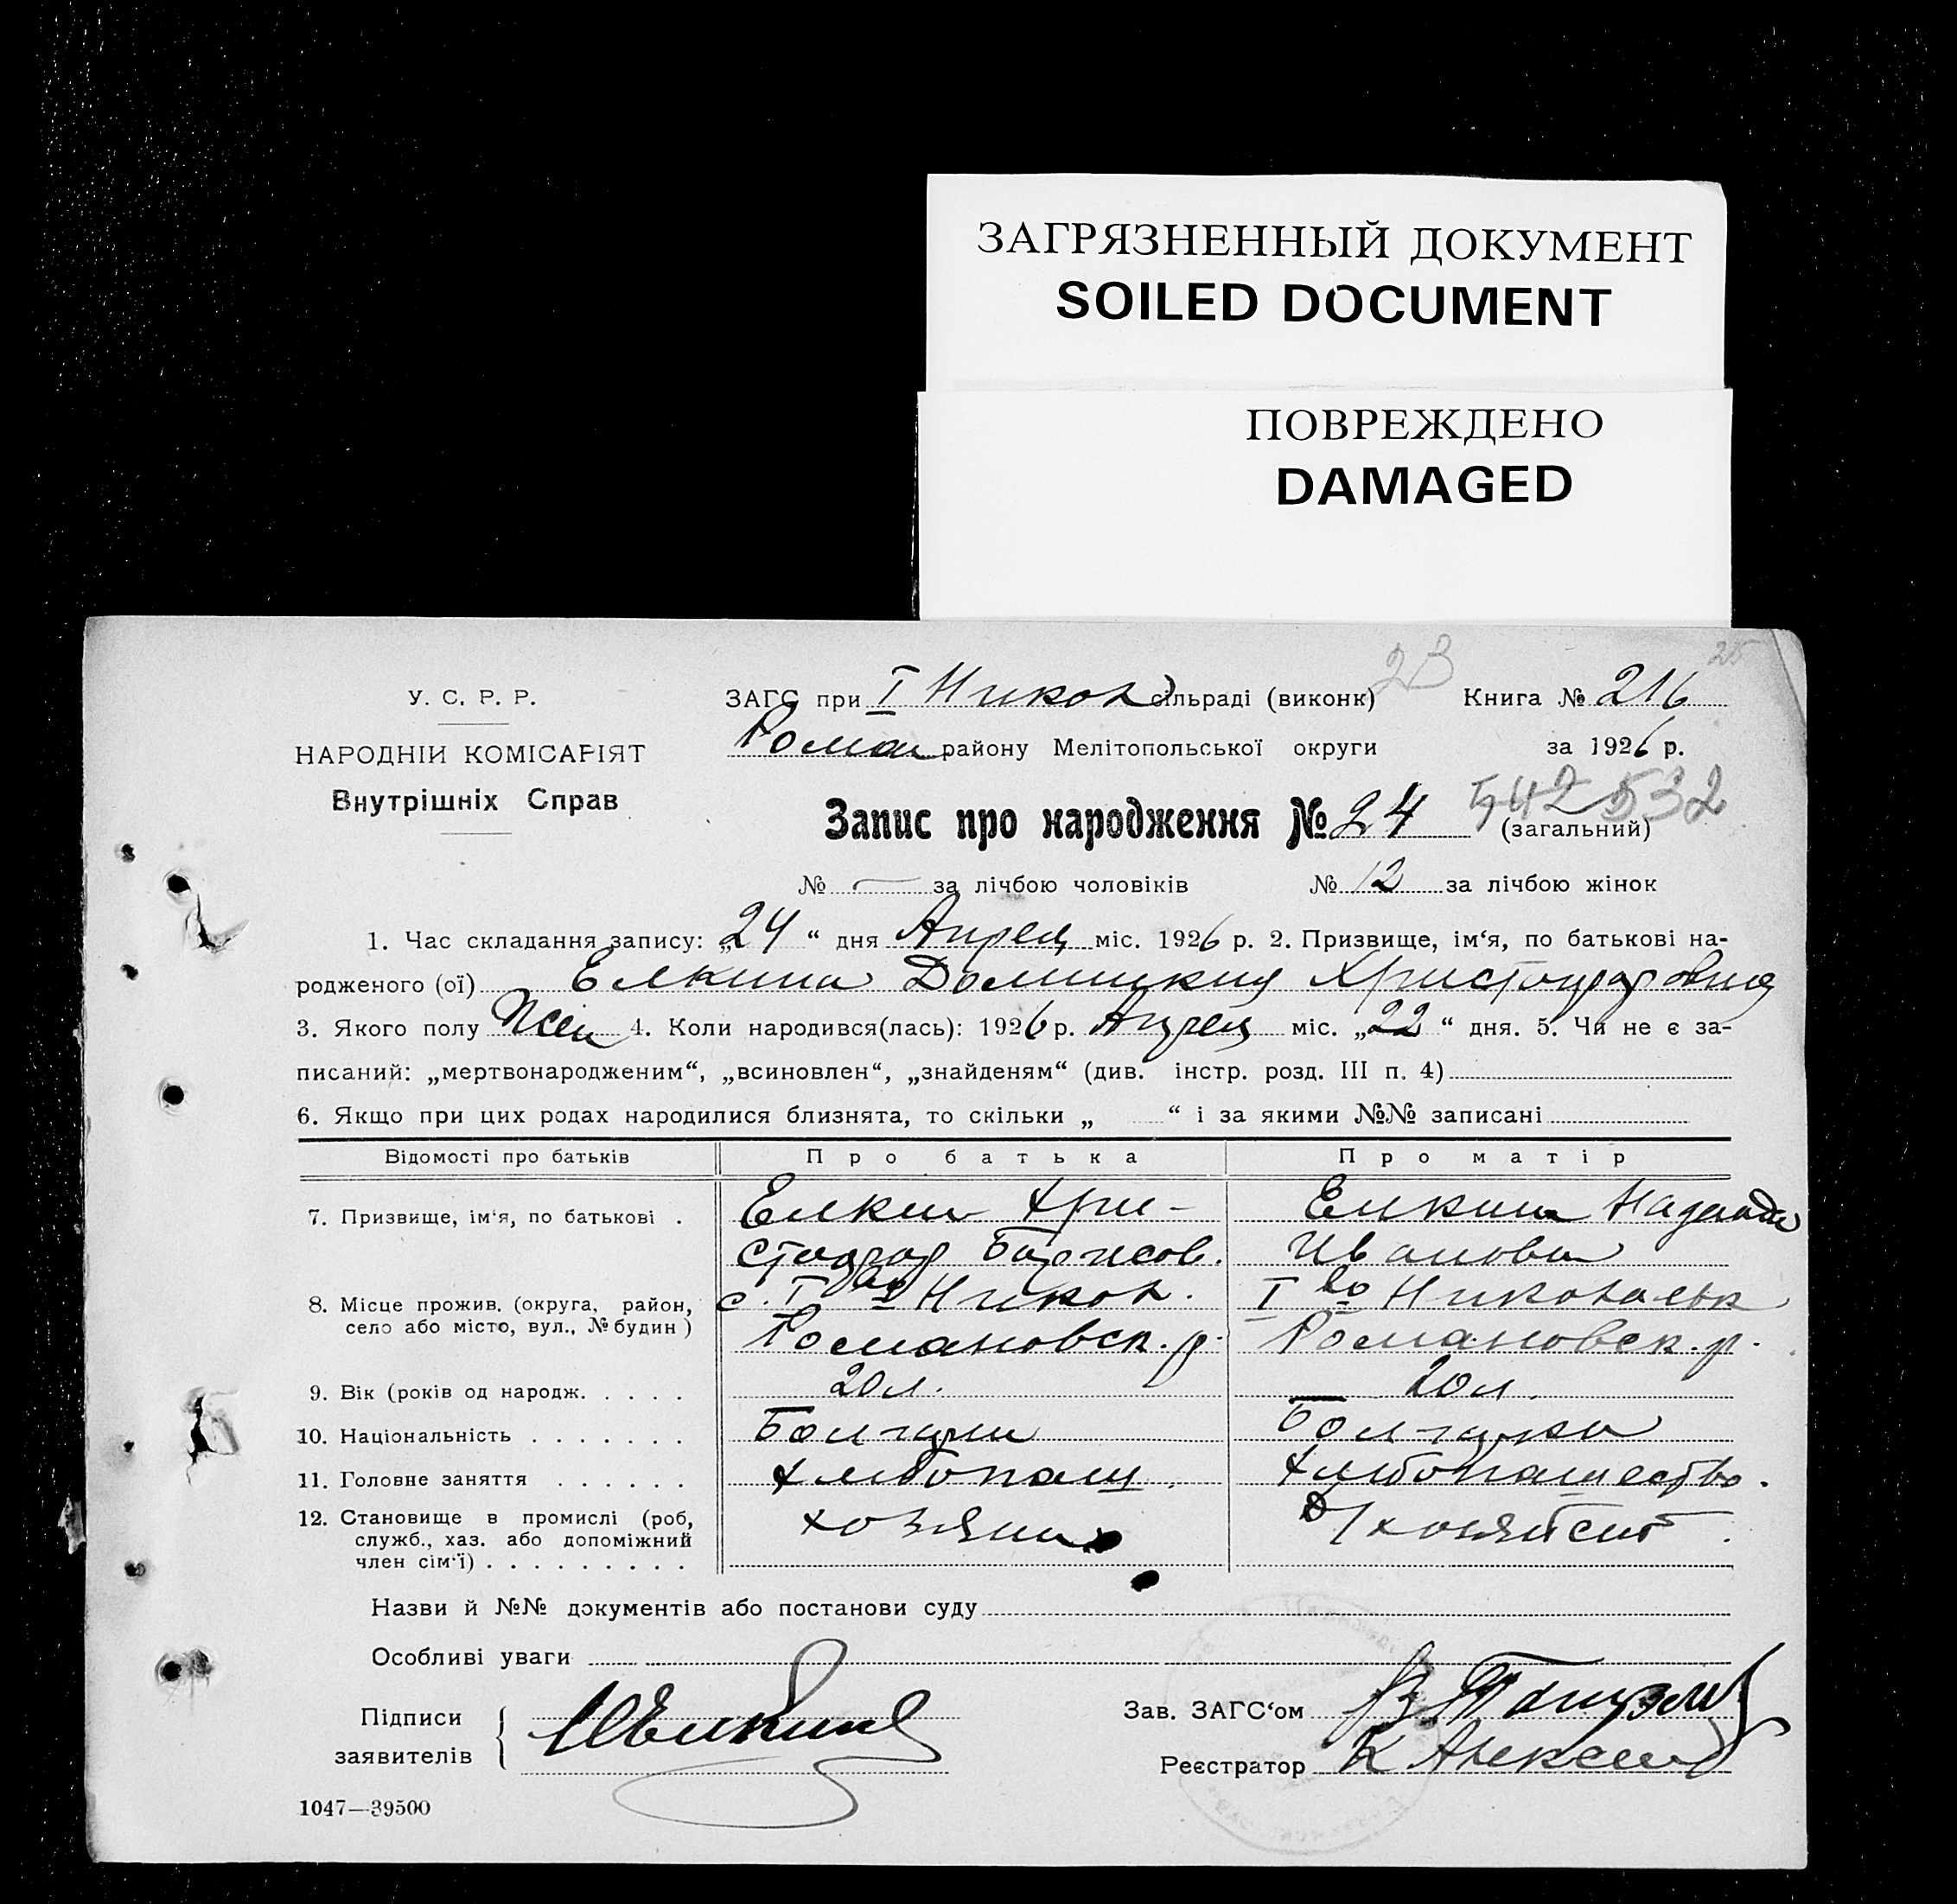 ЗАГРЯЗНЕННЫЙ ДОКУМЕНТ
SOILED DOCUMENT
ПОВРЕЖДЕНО
DAMAGED
23 25
У. С. Р. Р. ЗАГС при I Никол сільраді (виконк) Книга № 216
Роман району Мелітопольської округи за 1926 р.
НАРОДНІЙ КОМІСАРІЯТ
Внутрішніх Справ
542 532
Запис про народження № 24 (загальний)
№ — за лічбою чоловіків № 12 за лічбою жінок
1. Час складання запису: „24“ дня Апреля міс. 1926 р. 2. Призвище, ім‘я, по батькові на-
родженого (ої) Елкина Домникия Христофоровна
3. Якого полу Жен 4. Коли народився(лась): 1926 р. Апреля міс. „22“ дня. 5. Чи не є за-
писаний: „мертвонародженим“, „всиновлен“, „знайденям“ (див. інстр. розд. III п. 4)
6. Якщо при цих родах народилися близнята, то скільки „ “ і за якими №№ записані
Відомості про батьків Про батька Про матір
7. Призвище, ім‘я, по батькові . Елкин Хри- Елкина
стофор Борисов. Иванова
8. Місце прожив. (округа, район, с. I Никол. I Никольск
село або місто, вул., № будин) Романовск. р. Романовск. р.
9. Вік (років од народж. . . . . 20 л. 20 л.
10. Національність . . . . . . . Болгарин Болгарка
11. Головне заняття . . . . . . хлебопаш. хлебопашество.
12. Становище в промислі (роб, хозяин Д/хозяйст
служб., хаз. або допоміжний
член сім‘ї) . . . . . . . . .
Назви й №№ документів або постанови суду
Особливі уваги
Підписи
заявителів
Зав. ЗАГС‘ом
Реєстратор
1047—39500